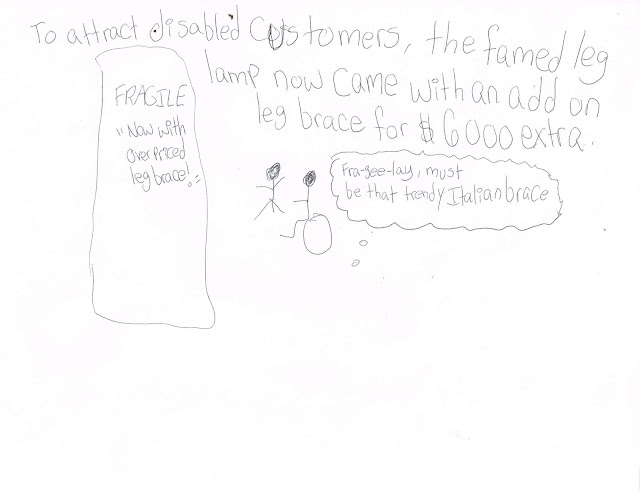 To attract disabled customers, the famed leg
lamp now came with an add on
leg brace for $6000 extra.
FRAGILE
"Now with
overpriced
leg brace!"
Fra-gee-lay, must
be that trendy Italian brace